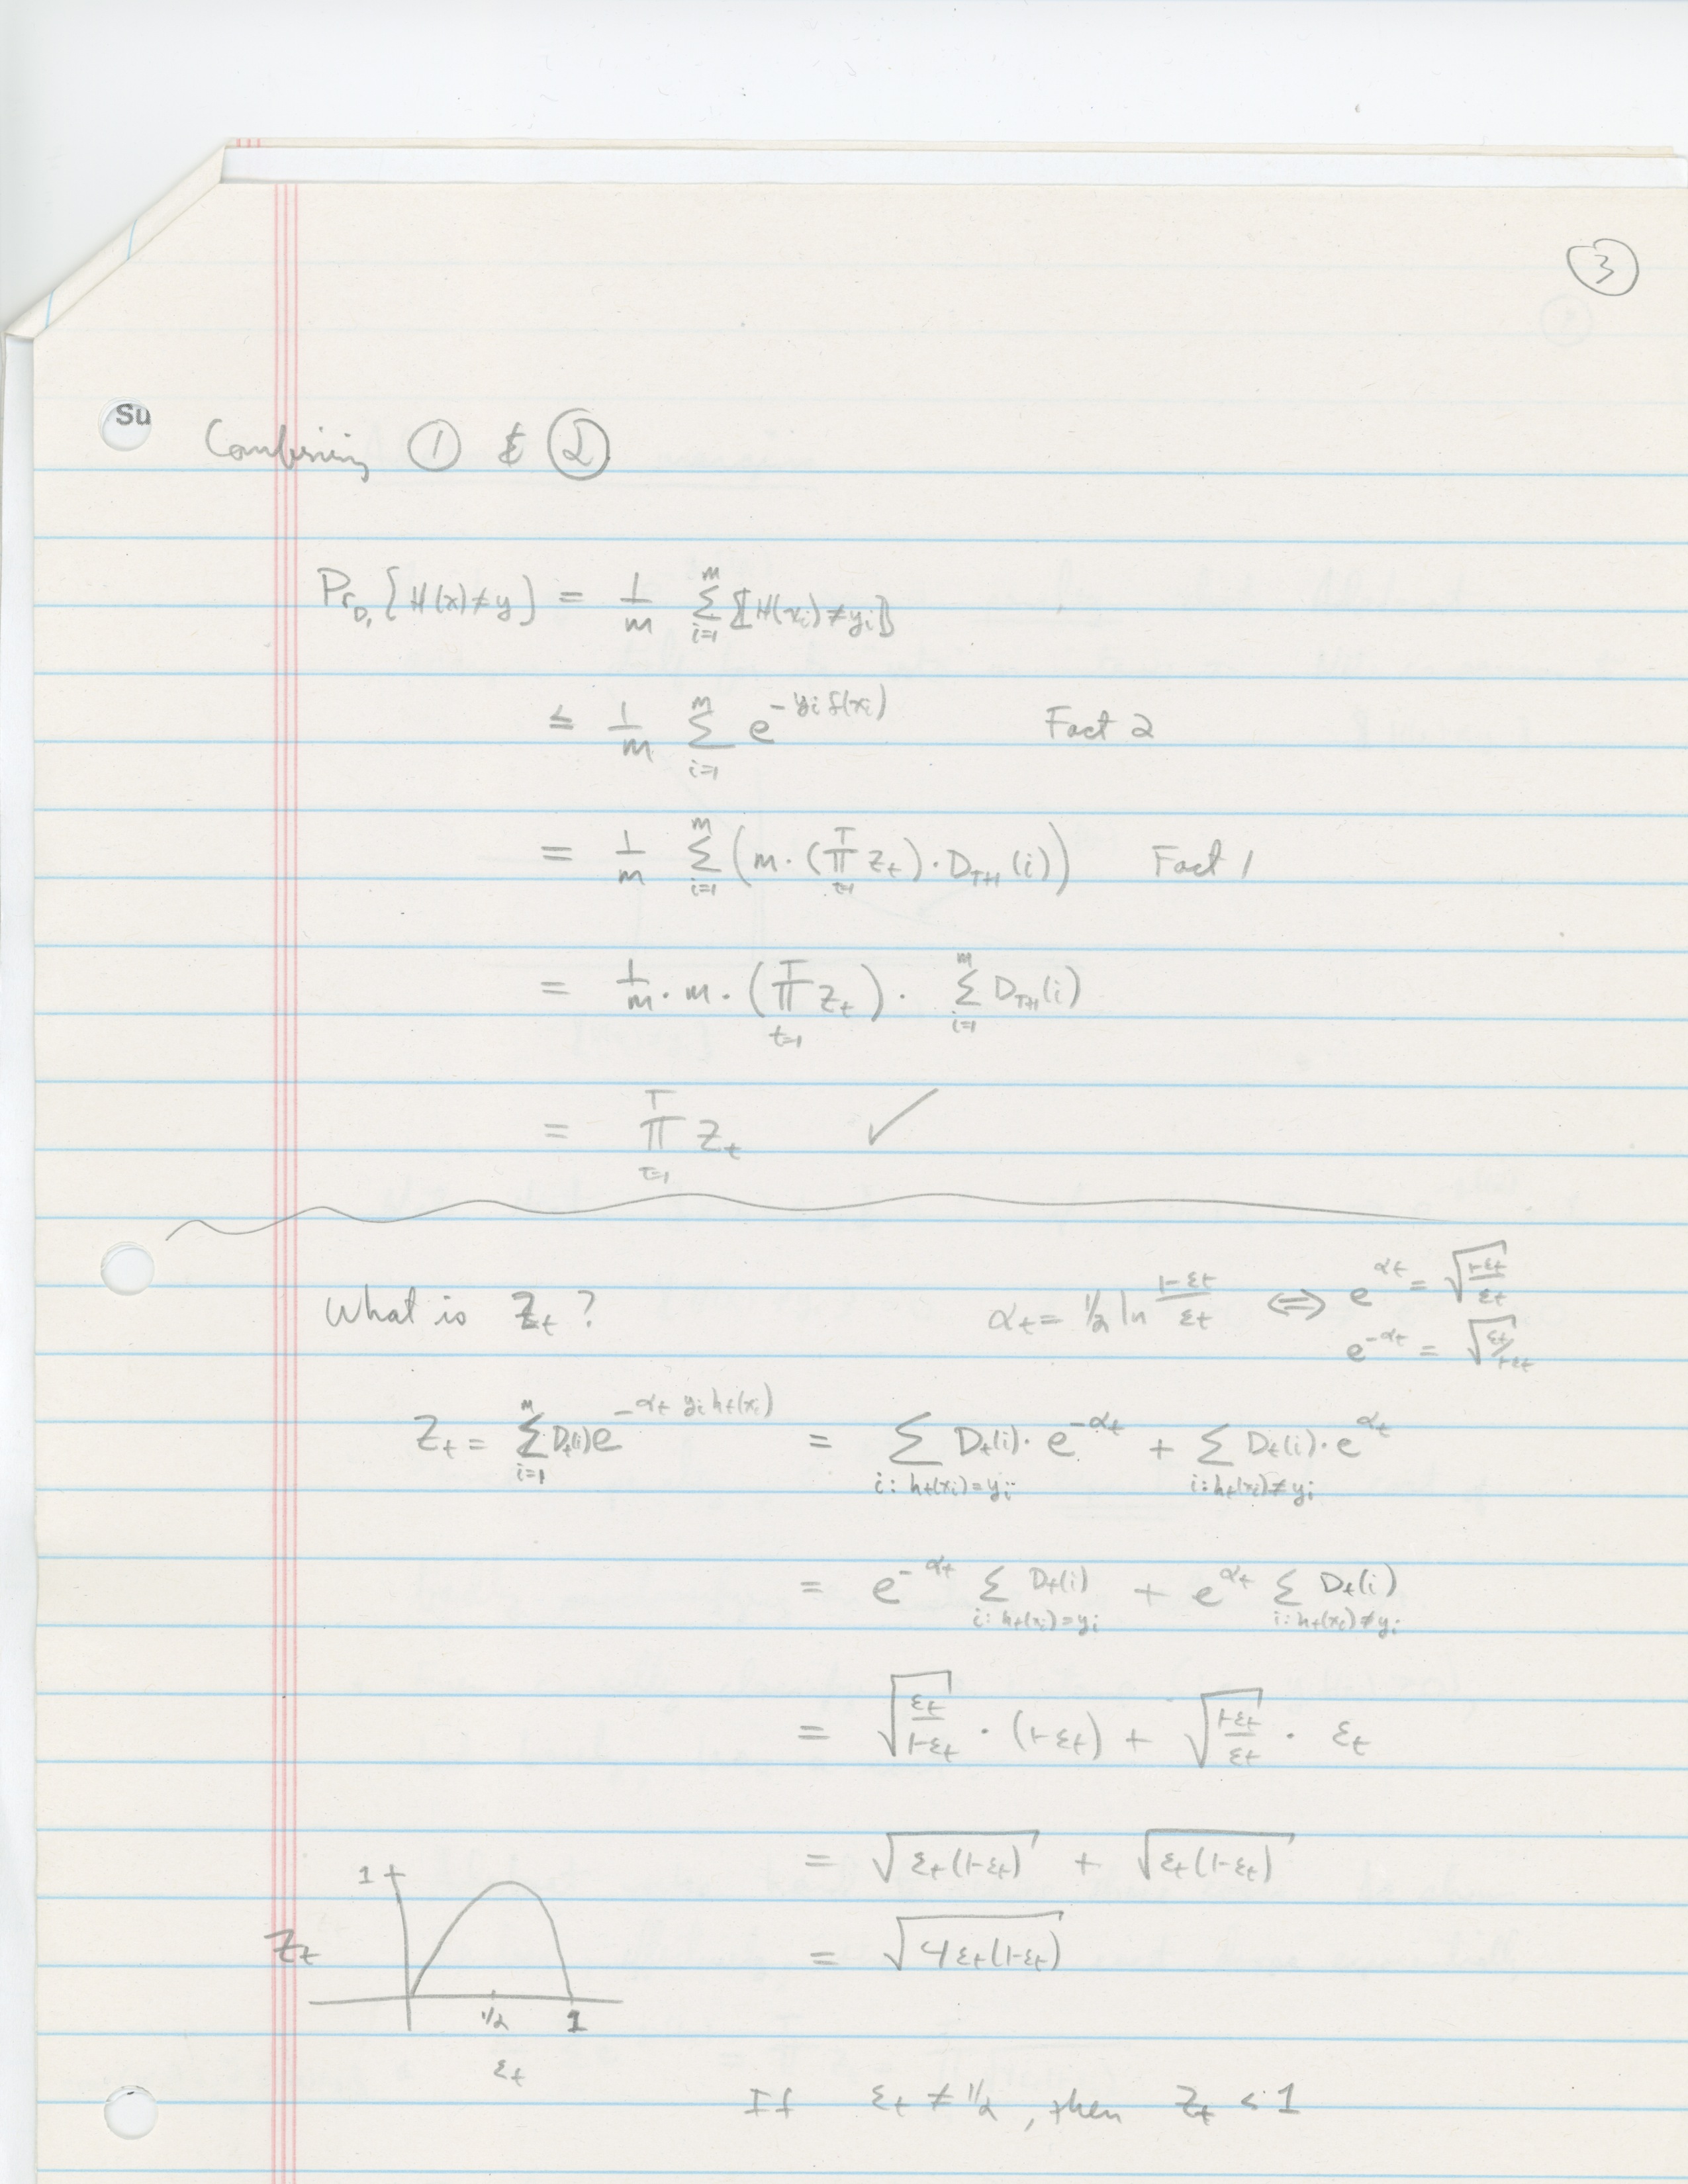 ③
Su
Combining ① & ②
Pr_{D_1}[H(x)≠y] = 1/m Σ_{i=1}^{m} [[H(x_i)≠y_i]]
≤ 1/m Σ_{i=1}^{m} e^{-y_i f(x_i)} Fact 2
= 1/m Σ_{i=1}^{m} (m · (Π_{t=1}^{T} Z_t) · D_{T+1}(i)) Fact 1
= 1/m · m · (Π_{t=1}^{T} Z_t) · Σ_{i=1}^{m} D_{T+1}(i)
= Π_{t=1}^{T} Z_t ✓
What is Z_t? α_t = ½ ln (1-ε_t)/ε_t ⇔ e^{α_t} = √((1-ε_t)/ε_t)
e^{-α_t} = √(ε_t/(1-ε_t))
Z_t = Σ_{i=1}^{m} D_t(i) e^{-α_t y_i h_t(x_i)} = Σ_{i: h_t(x_i)=y_i} D_t(i) · e^{-α_t} + Σ_{i: h_t(x_i)≠y_i} D_t(i) · e^{α_t}
= e^{-α_t} Σ_{i: h_t(x_i)=y_i} D_t(i) + e^{α_t} Σ_{i: h_t(x_i)≠y_i} D_t(i)
= √(ε_t/(1-ε_t)) · (1-ε_t) + √((1-ε_t)/ε_t) · ε_t
= √(ε_t(1-ε_t)) + √(ε_t(1-ε_t))
1
Z_t
= √(4ε_t(1-ε_t))
1/2 1
ε_t
If ε_t ≠ 1/2, then Z_t < 1